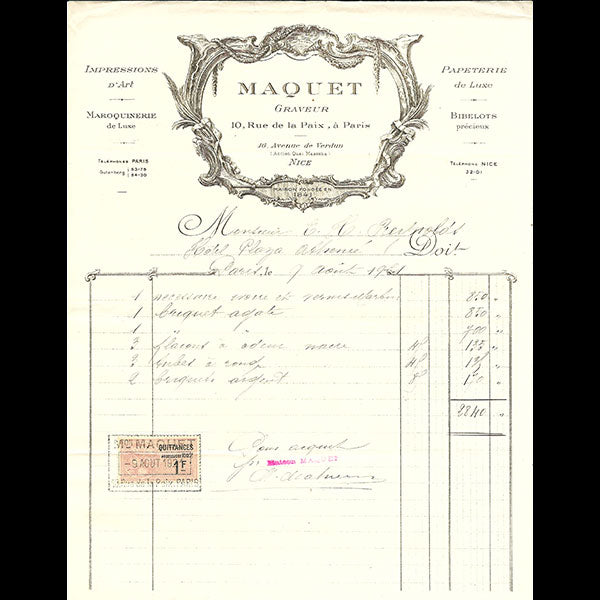 IMPRESSIONS
D'Art
MAROQUINERIE
de Luxe
TÉLÉPHONES PARIS
Gutenberg
53-79
24-30
MAQUET
GRAVEUR
10, Rue de la Paix, à Paris
16, Avenue de Verdun
NICE
MAISON FONDÉE EN
1841
PAPETERIE
de Luxe
BIBELOTS
précieux
TÉLÉPHONE NICE
32-01
Monsieur E. H. Reynolds
Hôtel Plaza Athénée Doit
Paris, le 9 août
1 nécessaire nacre et 850 "
1 briquet agate 850 "
1 " " 700 "
3 flacons à odeur nacre 135 "
3 à rouge
2 briquets argent
2840 "
Mon MAQUET
QUITTANCES
-9 AOUT 192
1F
Rue de la Paix PARIS
Pour acquit
Maison MAQUET